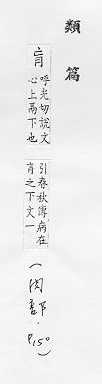 類篇
肓
呼光切說文
心上鬲下也
引春秋傳病在
肓之下文一
(肉部.P150)